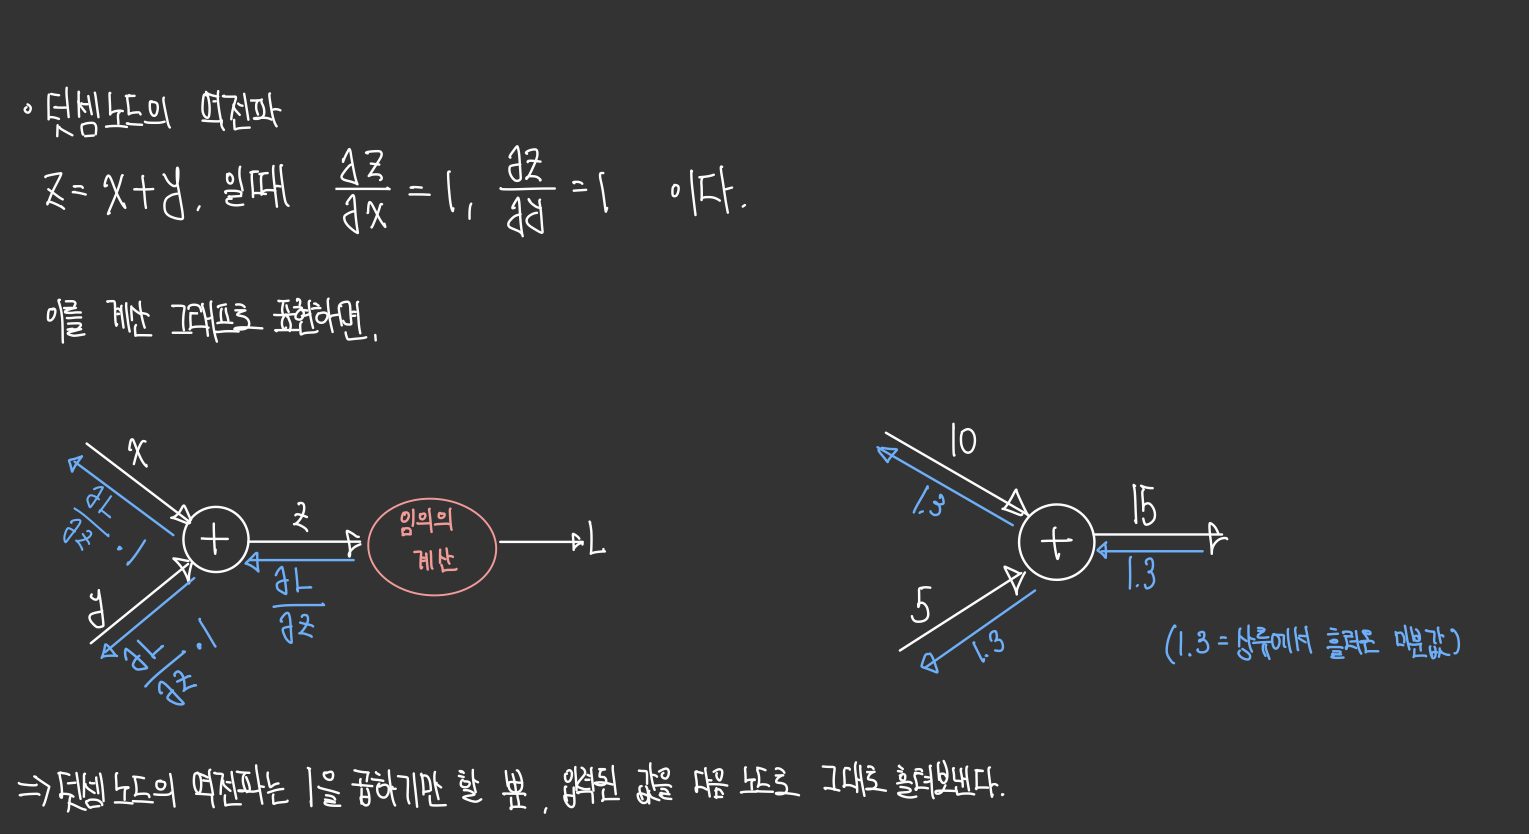 • 덧셈노드의 역전파
z = x + y, 일때 ∂z/∂x = 1, ∂z/∂y = 1 이다.
이를 계산 그래프로 표현하면,
x
∂L/∂z · 1
+
z
∂L/∂z
임의의
계산
L
y
∂L/∂z · 1
10
1.3
+
15
1.3
5
1.3
(1.3 = 상류에서 흘러온 미분값)
=> 덧셈 노드의 역전파는 1을 곱하기만 할 뿐, 입력된 값을 다음 노드로 그대로 흘려보낸다.